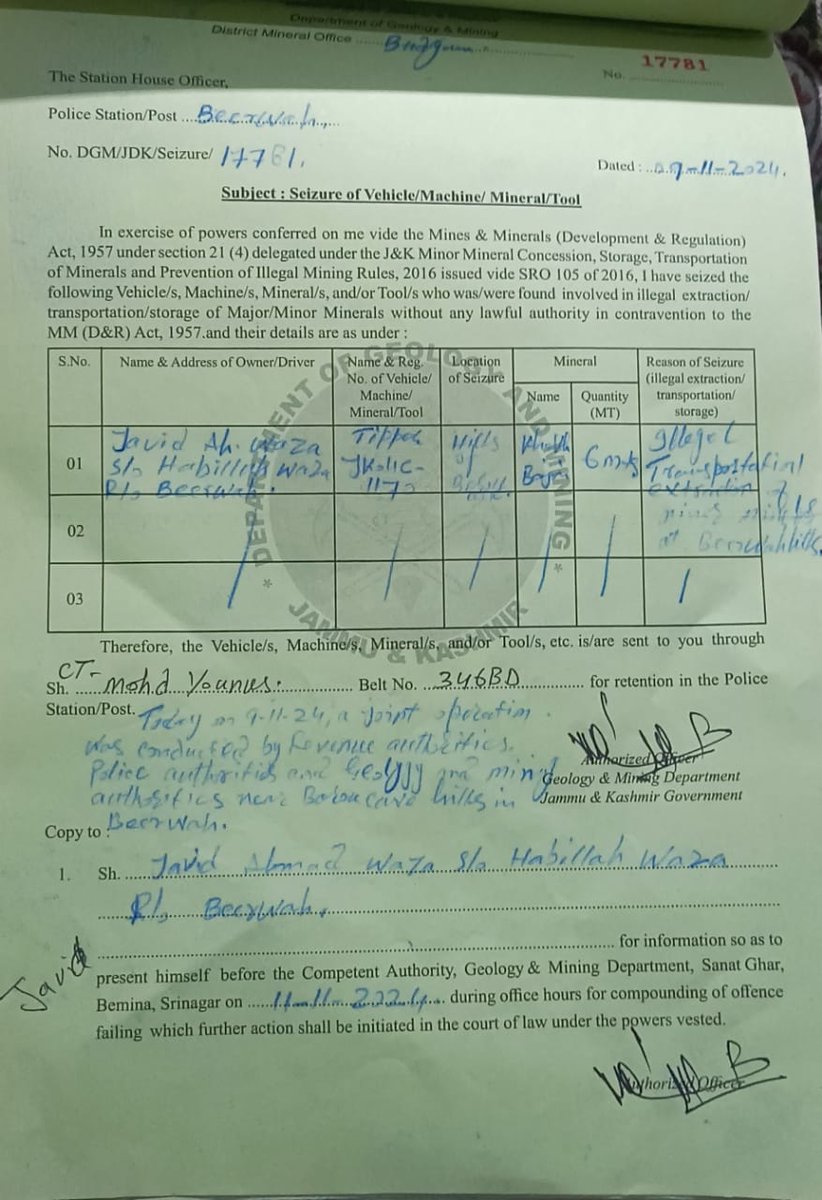 Department of Geology & Mining
District Mineral Office ........ Budgam
No. 17781
The Station House Officer,
Police Station/Post ....Beerwah,....
No. DGM/JDK/Seizure/ 17781.
Dated : ..09-11-2024.
Subject : Seizure of Vehicle/Machine/ Mineral/Tool
In exercise of powers conferred on me vide the Mines & Minerals (Development & Regulation)
Act, 1957 under section 21 (4) delegated under the J&K Minor Mineral Concession, Storage, Transportation
of Minerals and Prevention of Illegal Mining Rules, 2016 issued vide SRO 105 of 2016, I have seized the
following Vehicle/s, Machine/s, Mineral/s, and/or Tool/s who was/were found involved in illegal extraction/
transportation/storage of Major/Minor Minerals without any lawful authority in contravention to the
MM (D&R) Act, 1957.and their details are as under :
S.No. Name & Address of Owner/Driver Name & Reg. No. of Vehicle/ Machine/ Mineral/Tool Location of Seizure Mineral Name Quantity (MT) Reason of Seizure (illegal extraction/ transportation/ storage)
01 Javid Ah. Waza S/o Habillah Waza R/o Beerwah. Tipper Hills of 6 mts Illegal
at Beerwah hills.
02
03
DEPARTMENT OF GEOLOGY AND MINING
JAMMU & KASHMIR
Therefore, the Vehicle/s, Machine/s, Mineral/s, and/or Tool/s, etc. is/are sent to you through
CT-
Sh. .....Mohd Younus............... Belt No. ...346BD............... for retention in the Police
Station/Post. Today on 9-11-24, a joint operation.
was conducted by Revenue authorities.
Police authorities and Geology and
authorities near hills in
Beerwah.
Authorized Officer
Geology & Mining Department
Jammu & Kashmir Government
Copy to :
1. Sh. ....Javid Ahmad Waza S/o Habillah Waza
R/o Beerwah.
Javid
for information so as to
present himself before the Competent Authority, Geology & Mining Department, Sanat Ghar,
Bemina, Srinagar on .....11-11-2024.... during office hours for compounding of offence
failing which further action shall be initiated in the court of law under the powers vested.
Authorized Officer